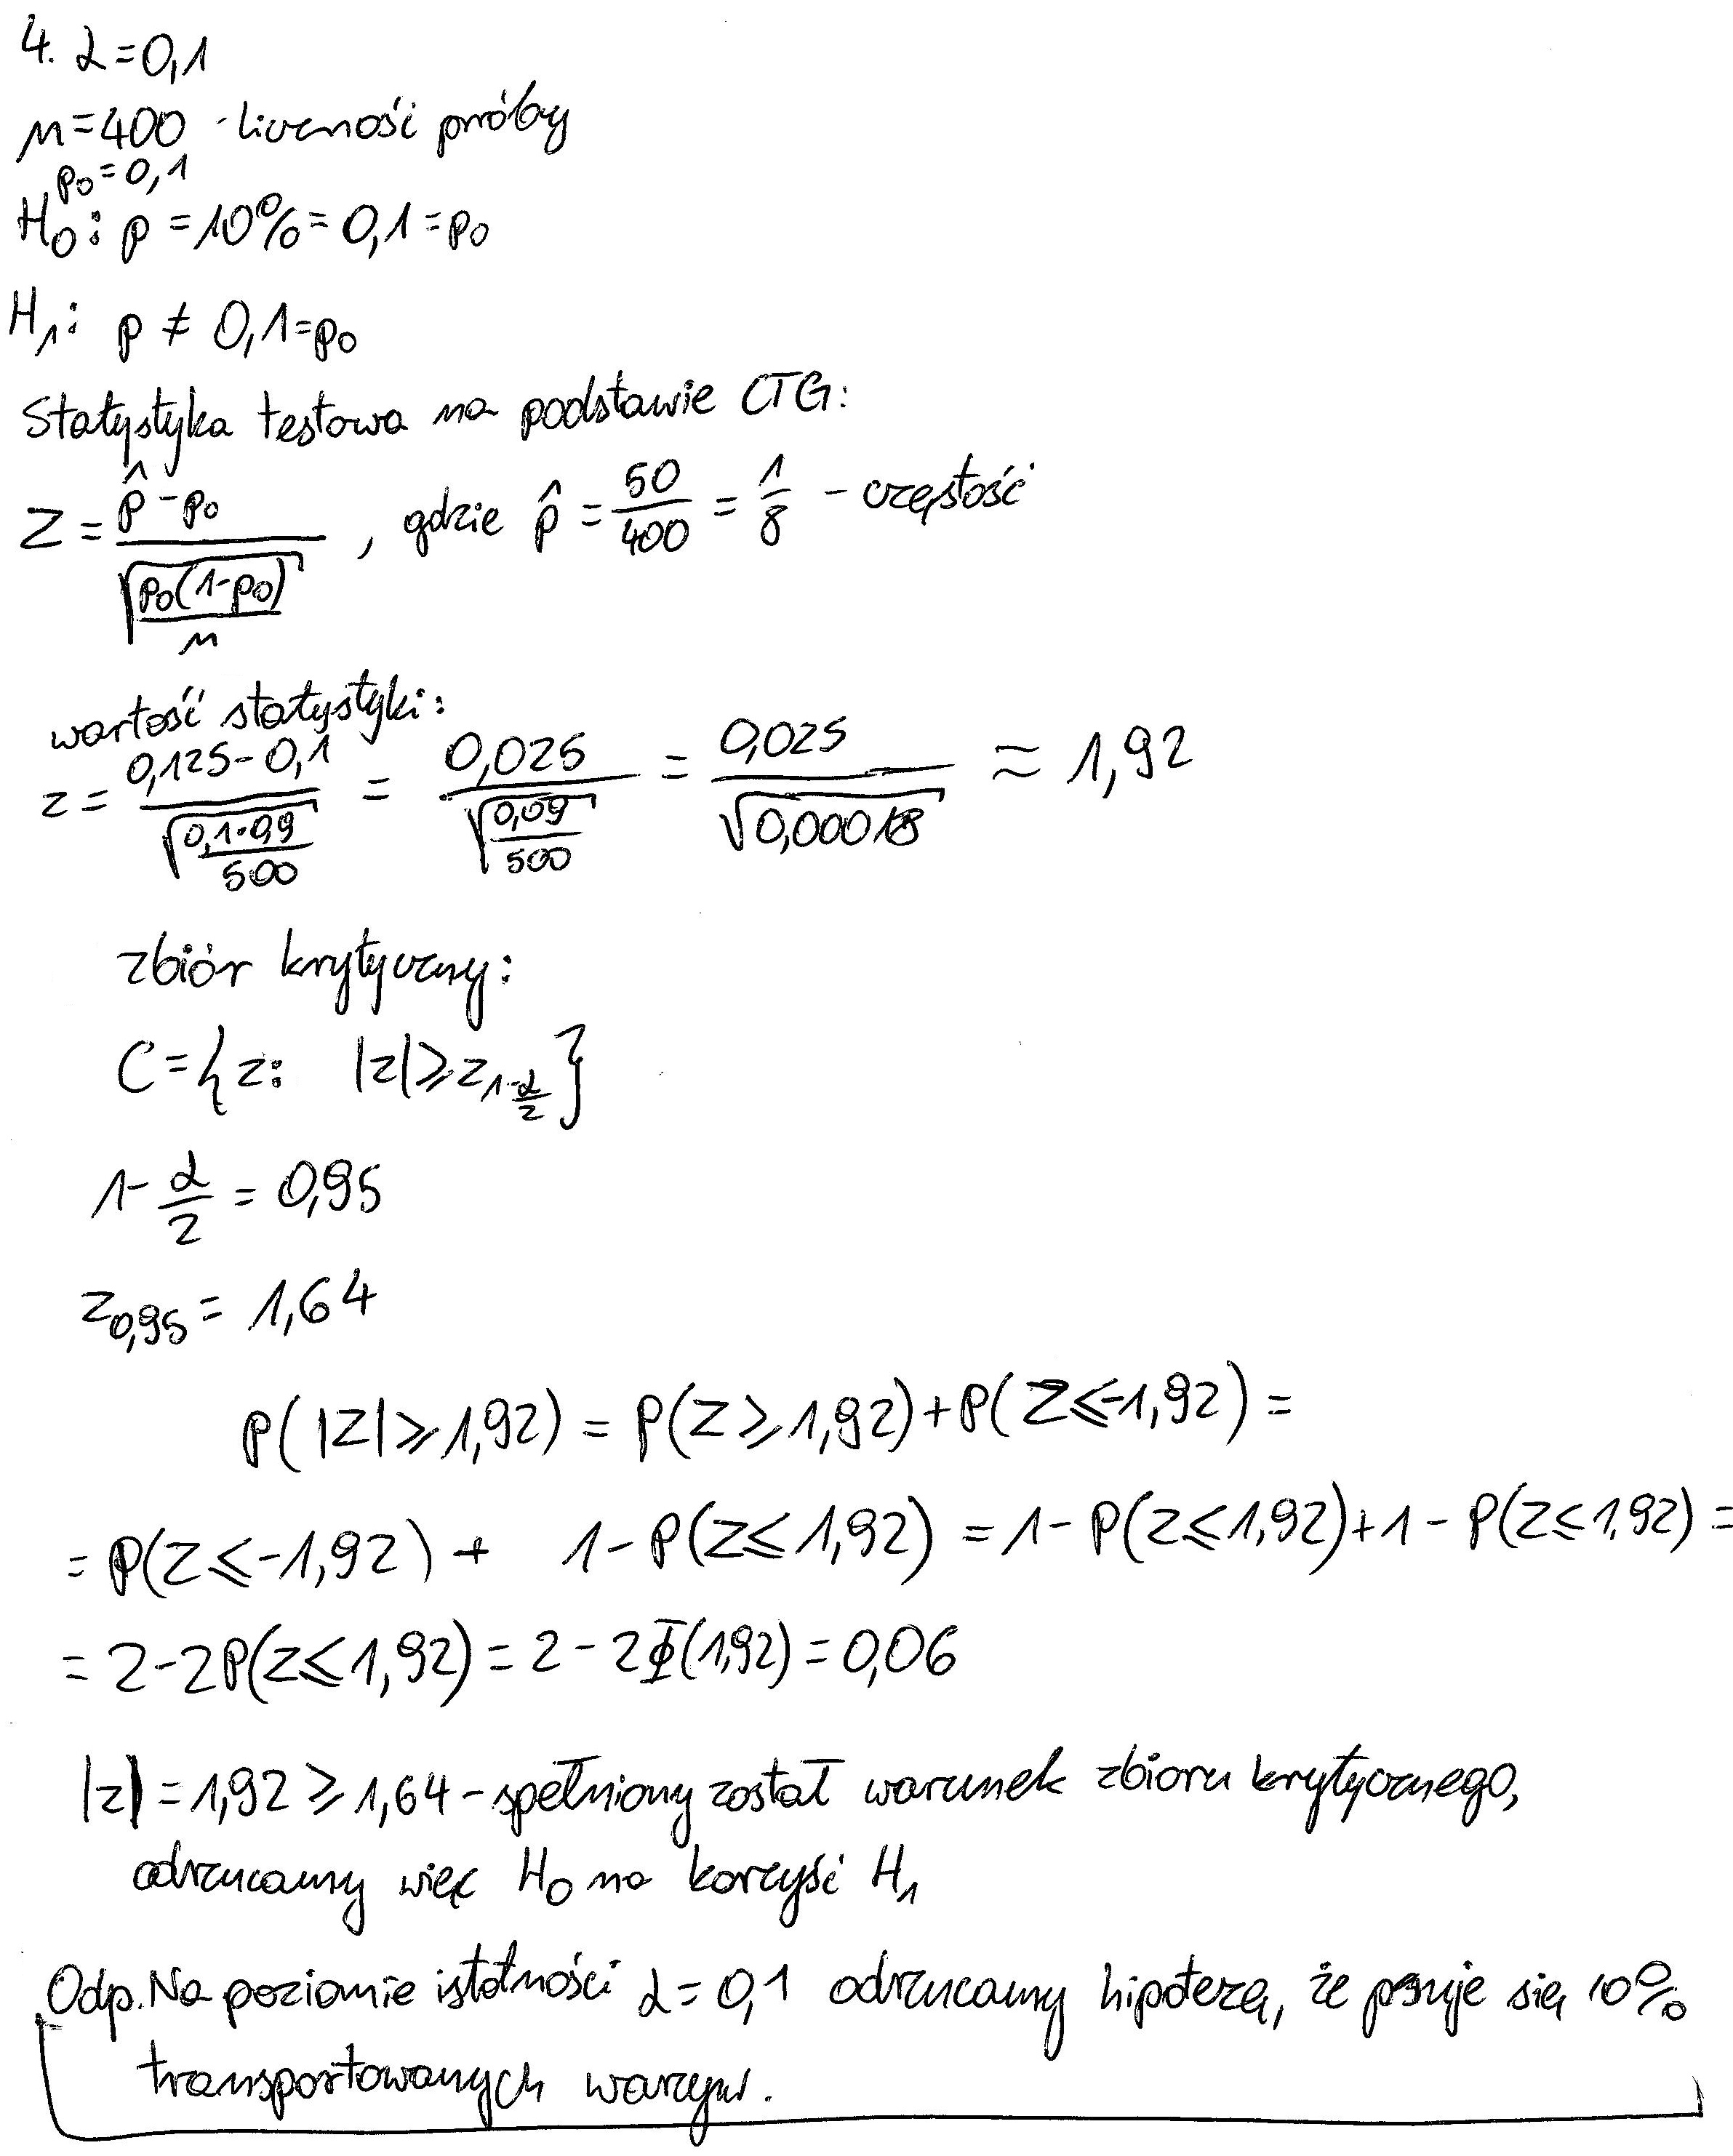 4. α=0,1
n=400 - liczność próby
p₀=0,1
H₀: p=10%=0,1=p₀
H₁: p≠0,1=p₀
Statystyka testowa na podstawie CTG:
Z = (p̂-p₀)/√(p₀(1-p₀)/n), gdzie p̂ = 50/400 = 1/8 - częstość
wartość statystyki:
z = (0,125-0,1)/√(0,1·0,9/500) = 0,025/√(0,09/500) = 0,025/√0,00018 ≈ 1,92
zbiór krytyczny:
C={z: |z|⩾z_{1-α/2}}
1-α/2 = 0,95
z_{0,95} = 1,64
P(|Z|⩾1,92) = P(Z⩾1,92)+P(Z⩽-1,92) =
= P(Z⩽-1,92) + 1-P(Z⩽1,92) = 1-P(Z⩽1,92)+1-P(Z⩽1,92) =
= 2-2P(Z⩽1,92) = 2-2Φ(1,92) = 0,06
|z| = 1,92 ⩾ 1,64 - spełniony został warunek zbioru krytycznego,
odrzucamy więc H₀ na korzyść H₁
Odp. Na poziomie istotności α=0,1 odrzucamy hipotezę, że psuje się 10%
transportowanych warzyw.